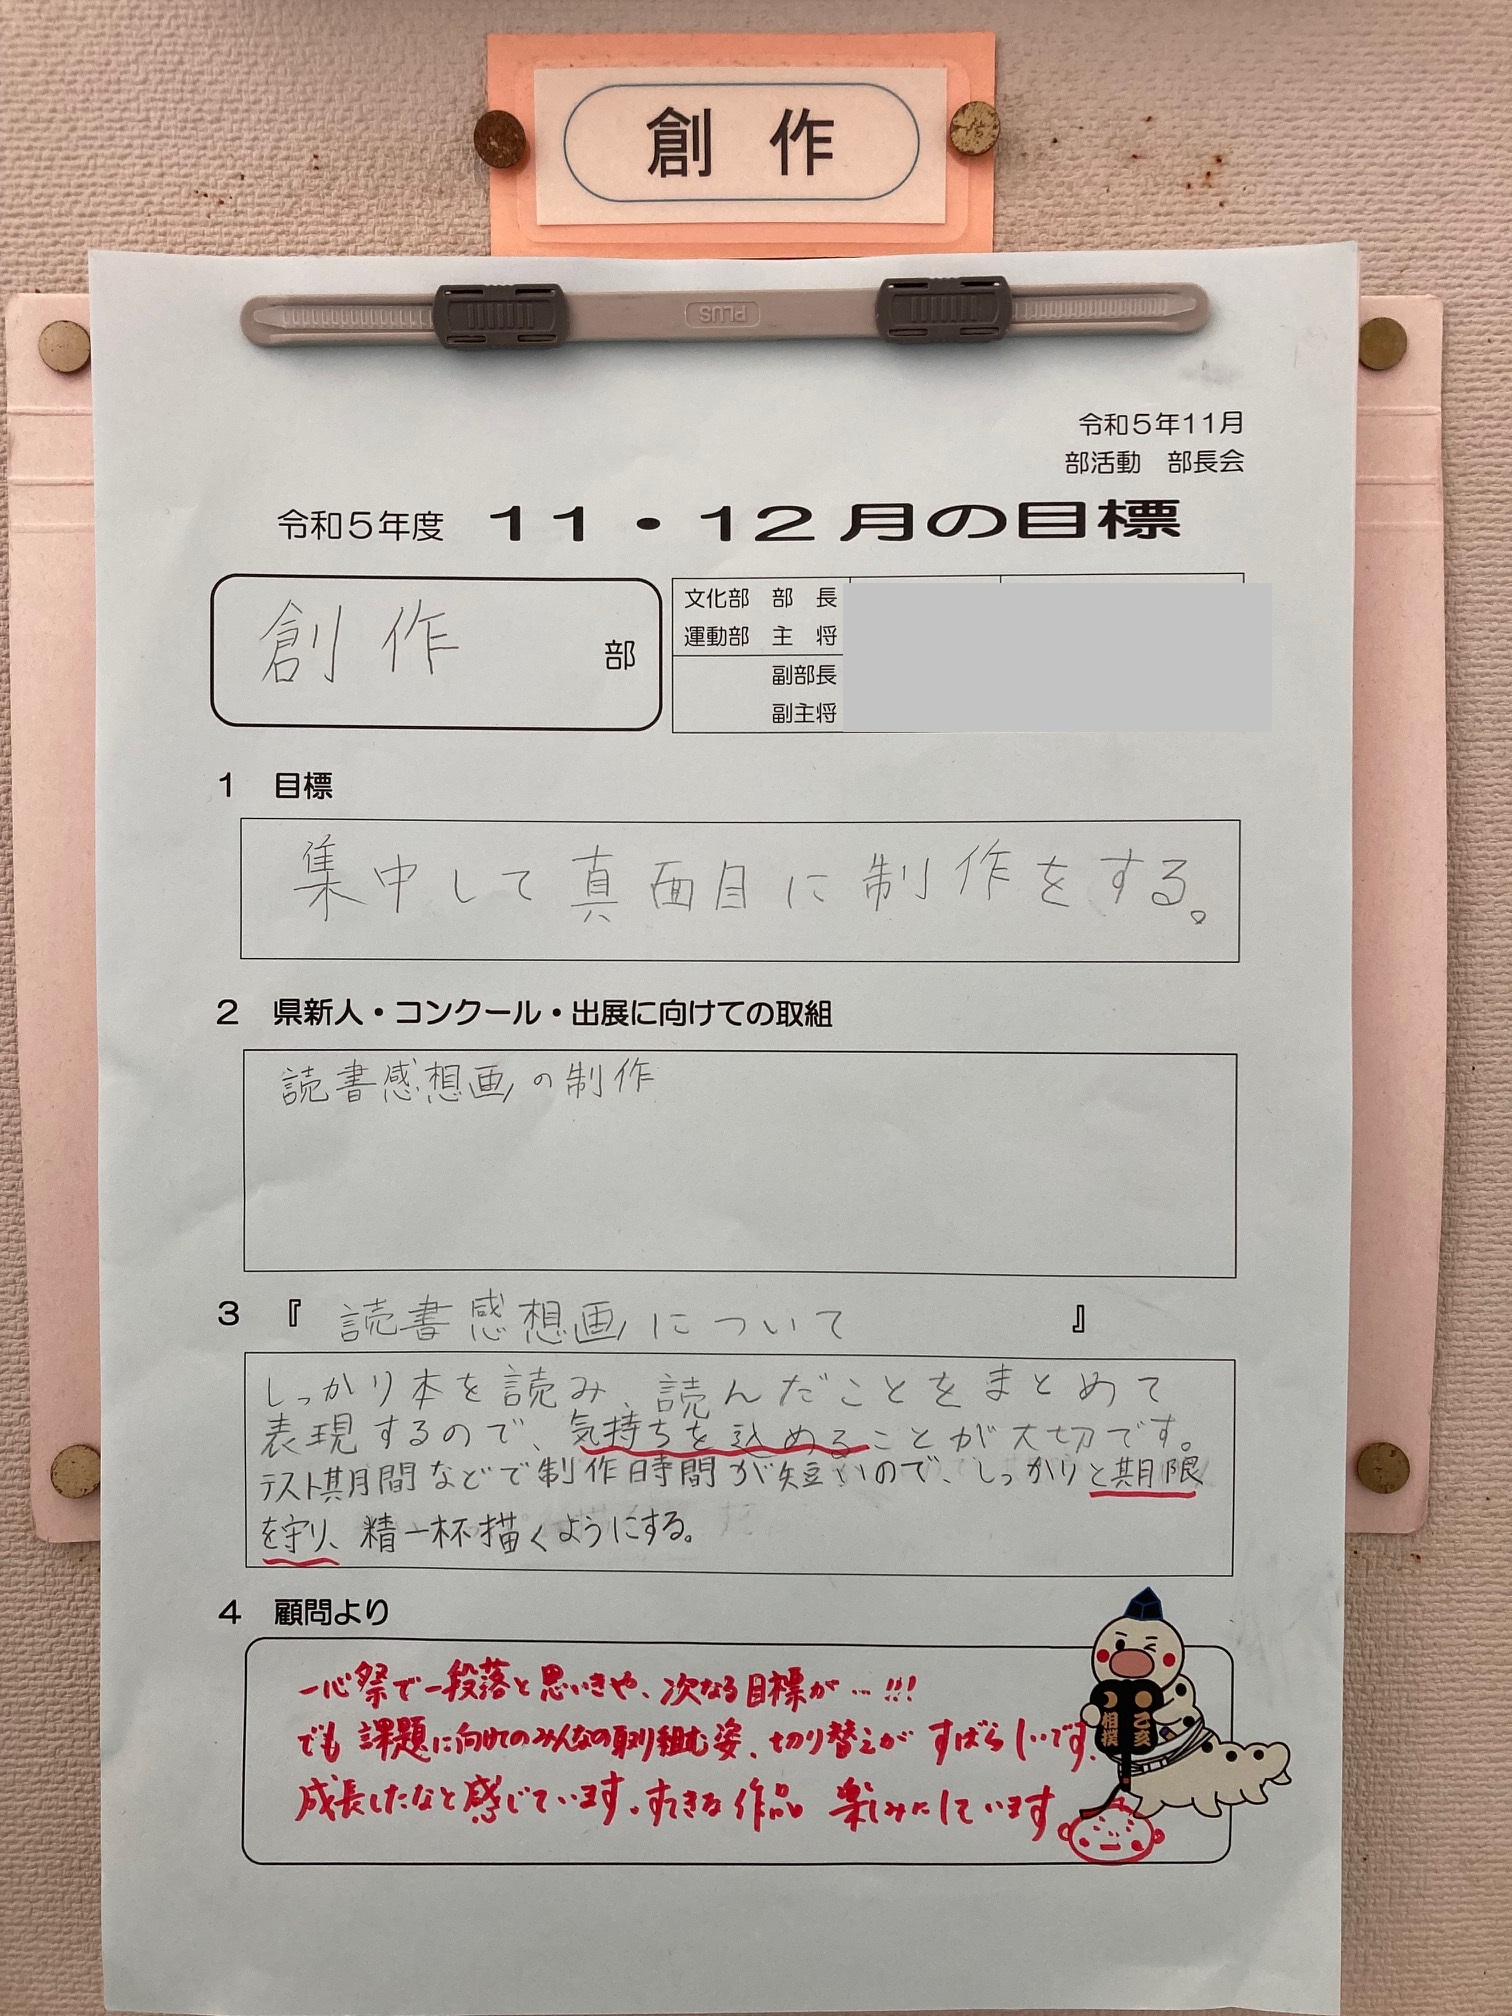 創 作
PLUS
令和5年11月
部活動 部長会
令和5年度 11・12月の目標
創作 部
文化部 部 長
運動部 主 将
副部長
副主将
1 目標
集中して真面目に制作をする。
2 県新人・コンクール・出展に向けての取組
読書感想画の制作
3 『 読書感想画について 』
しっかり本を読み、読んだことをまとめて
表現するので、気持ちを込めることが大切です。
テスト期間などで制作時間が短いので、しっかりと期限
を守り、精一杯描くようにする。
4 顧問より
一心祭で一段落と思いきや、次なる目標が…!!!
でも課題に向けてのみんなの取り組む姿、切り替えがすばらしいです。
成長したなと感じています。すてきな作品 楽しみにしています
乙亥
相撲